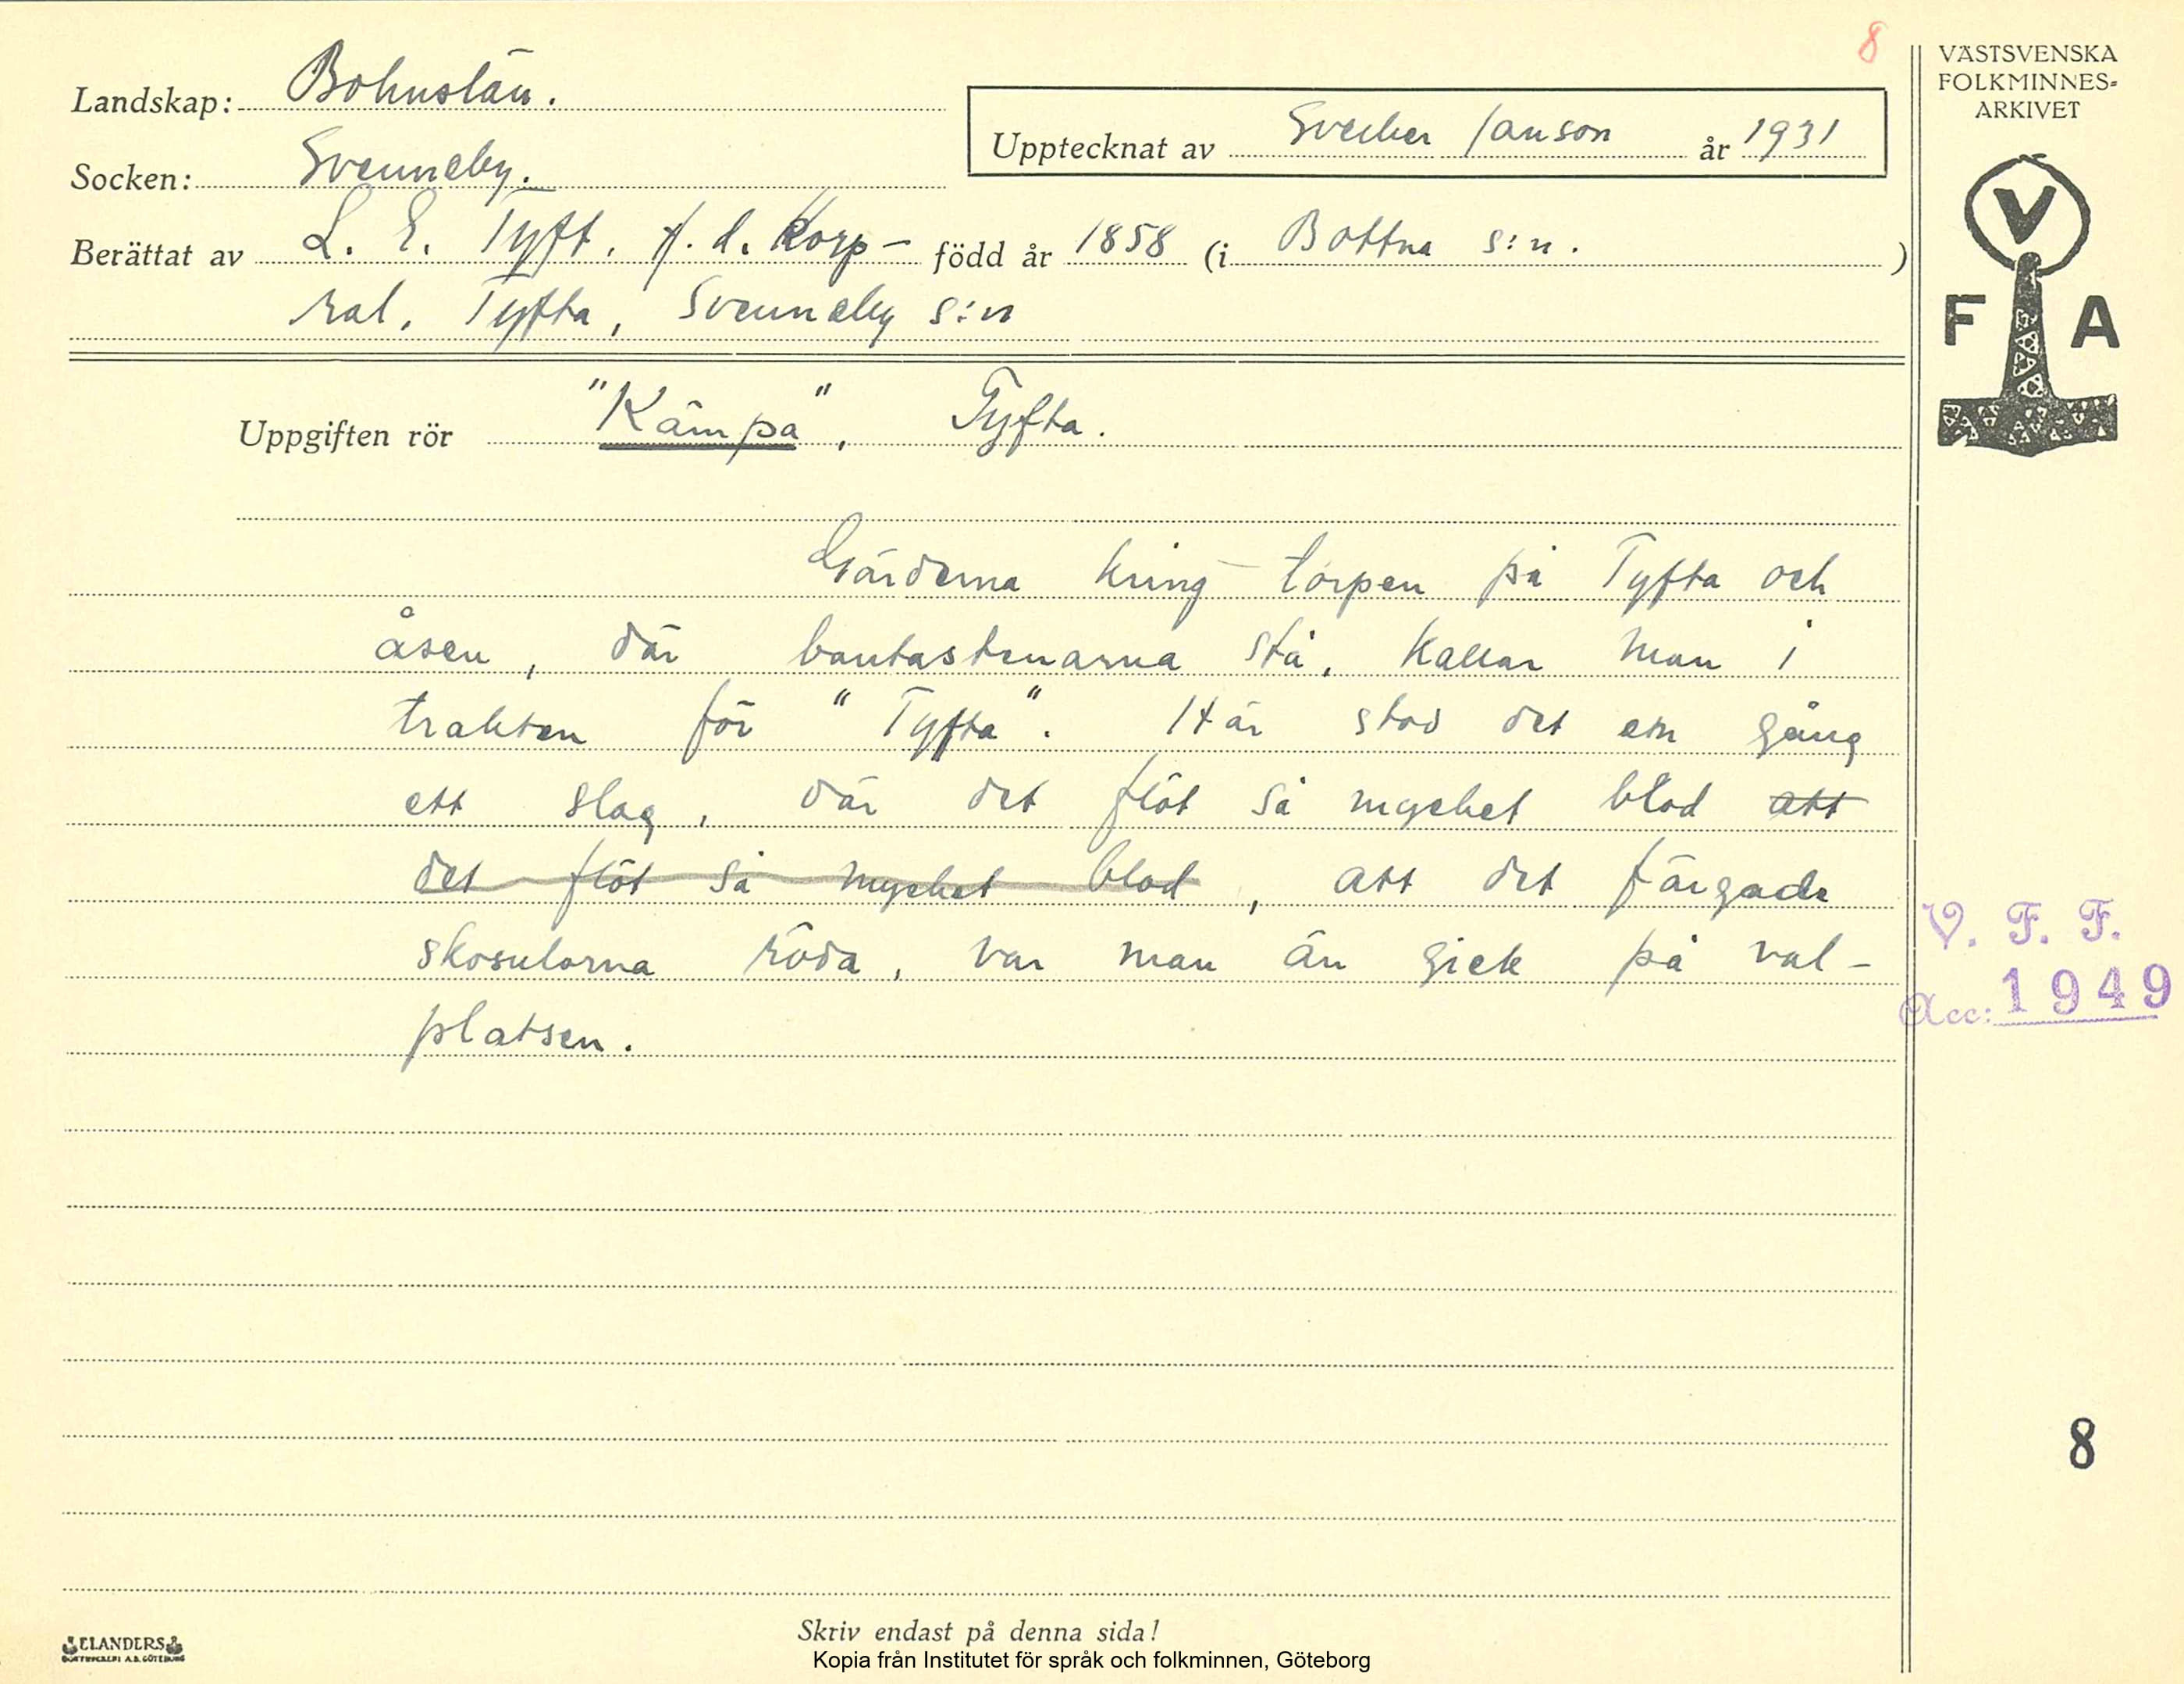 8
VÄSTSVENSKA
FOLKMINNES-
ARKIVET
Landskap: Bohuslän.
Upptecknat av Sverker Janson år 1931
Socken: Svenneby.
Berättat av L. E. Tyft, f.d. Korp- född år 1858 (i Bottna s:n. )
ral, Tyfta, Svenneby s:n
V
F A
Uppgiften rör "Kämpa", Tyfta.
Gärderna kring torpen på Tyfta och
åsen, där bautastenarna stå, kallar man i
trakten för "Tyfta". Här stod det en gång
ett slag, där det flöt så mycket blod att
det flöt så mycket blod, att det färgade
skosulorna röda, var man än gick på val-
platsen.
V. F. F.
Acc: 1949
8
Skriv endast på denna sida!
ELANDERS
BOKTRYCKERI A.B. GÖTEBORG
Kopia från Institutet för språk och folkminnen, Göteborg